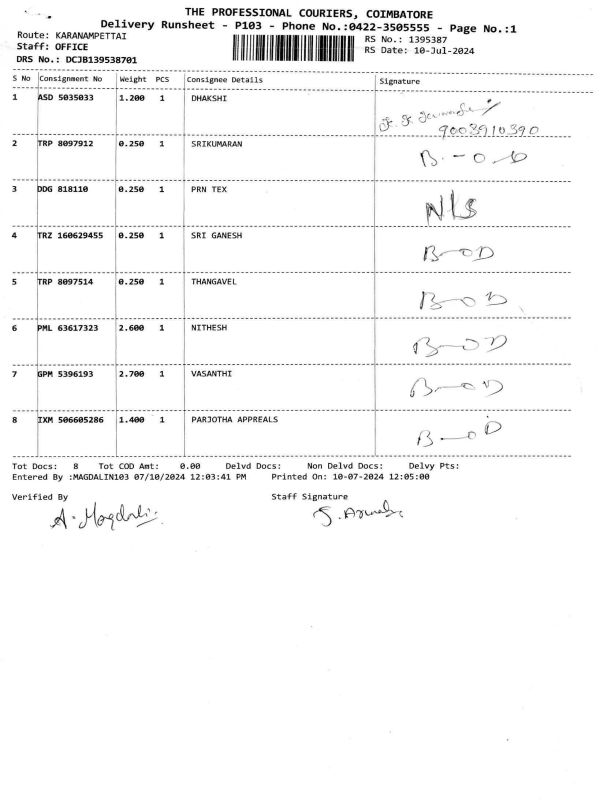 THE PROFESSIONAL COURIERS, COIMBATORE
Delivery Runsheet - P103 - Phone No.:0422-3505555 - Page No.:1
Route: KARANAMPETTAI
RS No.: 1395387
Staff: OFFICE
RS Date: 10-Jul-2024
DRS No.: DCJB139538701
S No Consignment No Weight PCS Consignee Details Signature
1 ASD 5035033 1.200 1 DHAKSHI
9003910390
2 TRP 8097912 0.250 1 SRIKUMARAN B.-O.D
3 DDG 818110 0.250 1 PRN TEX N/S
4 TRZ 160629455 0.250 1 SRI GANESH B-OD
5 TRP 8097514 0.250 1 THANGAVEL B-OD
6 PML 63617323 2.600 1 NITHESH B-OD
7 GPM 5396193 2.700 1 VASANTHI B-OD
8 IXM 506605286 1.400 1 PARJOTHA APPREALS B-OD
Tot Docs: 8 Tot COD Amt: 0.00 Delvd Docs: Non Delvd Docs: Delvy Pts:
Entered By :MAGDALIN103 07/10/2024 12:03:41 PM Printed On: 10-07-2024 12:05:00
Verified By Staff Signature
A. Magdalin